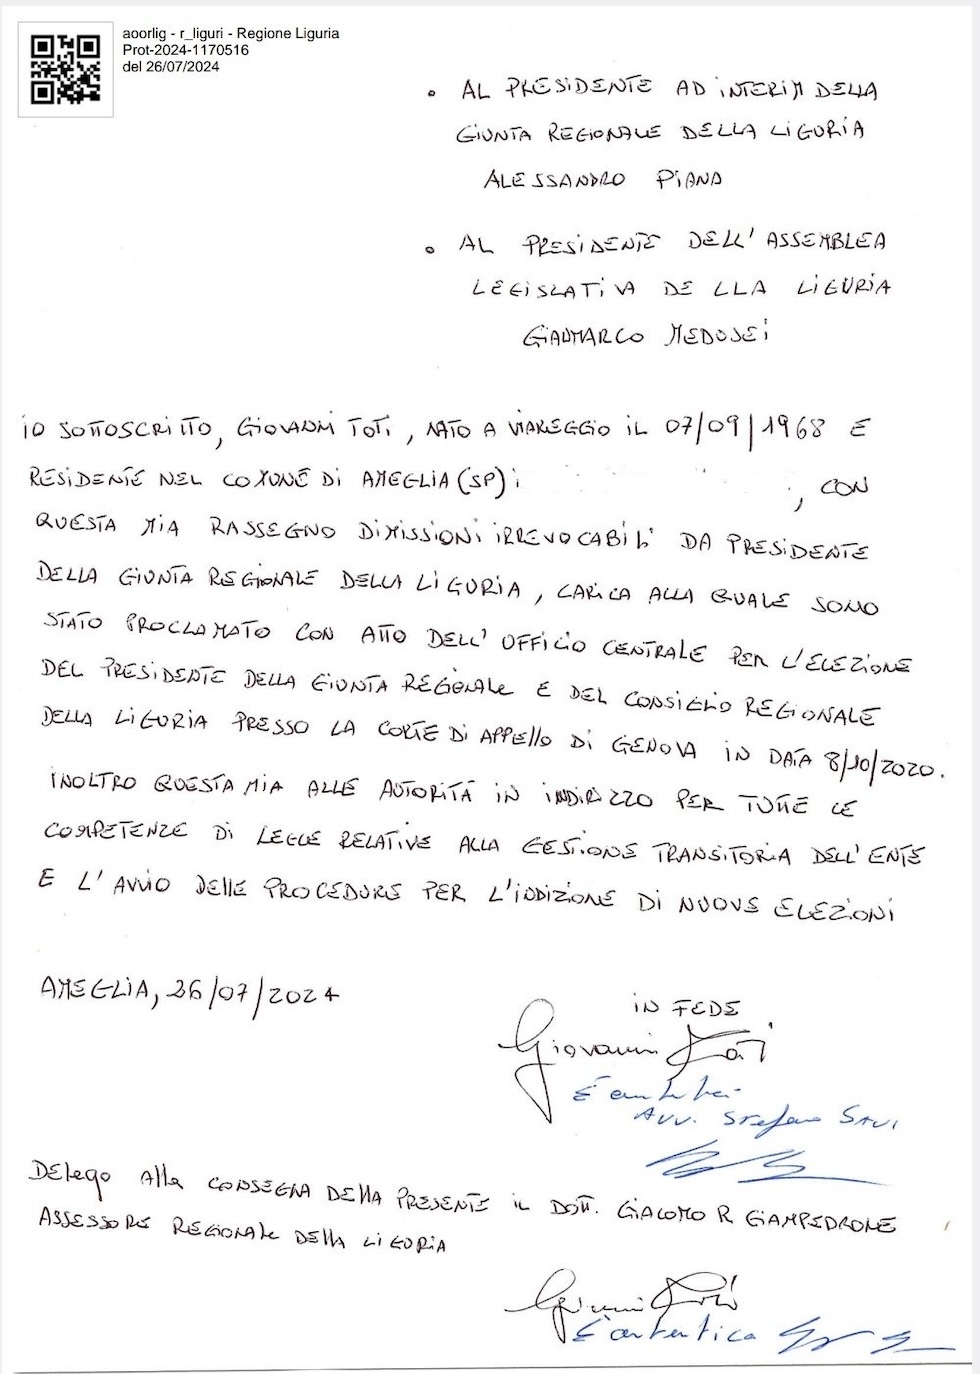 aoorlig - r_liguri - Regione Liguria
Prot-2024-1170516
del 26/07/2024
• AL PRESIDENTE AD iNTERIM DELLA
GIUNTA REGIONALE DELLA LIGURIA
ALESSANDRO PIANA
• AL PRESIDENTE DELL'ASSEMBLEA
LEGISLATIVA DELLA LIGURIA
GIANMARCO MEDUSEI
IO SOTTOSCRITTO, GIOVANNI TOTI, NATO A VIAREGGIO IL 07/09/1968 E
RESIDENTE NEL COMUNE DI AMEGLIA (SP) , CON
QUESTA MIA RASSEGNO DIMISSIONI IRREVOCABILI DA PRESIDENTE
DELLA GIUNTA REGIONALE DELLA LIGURIA, CARICA ALLA QUALE SONO
STATO PROCLAMATO CON ATTO DELL'UFFICIO CENTRALE PER L'ELEZIONE
DEL PRESIDENTE DELLA GIUNTA REGIONALE E DEL CONSIGLIO REGIONALE
DELLA LIGURIA PRESSO LA CORTE DI APPELLO DI GENOVA IN DATA 8/10/2020.
INOLTRO QUESTA MIA ALLE AUTORITÀ IN INDIRIZZO PER TUTTE LE
COMPETENZE DI LEGGE RELATIVE ALLA GESTIONE TRANSITORIA DELL'ENTE
E L'AVVIO DELLE PROCEDURE PER L'INDIZIONE DI NUOVE ELEZIONI
AMEGLIA, 26/07/2024
IN FEDE
Giovanni Toti
Avv. Stefano Savi
DELEGO ALLA CONSEGNA DELLA PRESENTE IL DOTT. GIACOMO R GIAMPEDRONE
ASSESSORE REGIONALE DELLA LIGURIA
È autentica